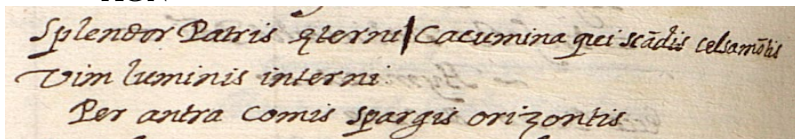 Splendor Patris ęterni | Cacumina qui scādis celsa mōtis
Vim luminis interni
Per antra Comis spargis orizontis